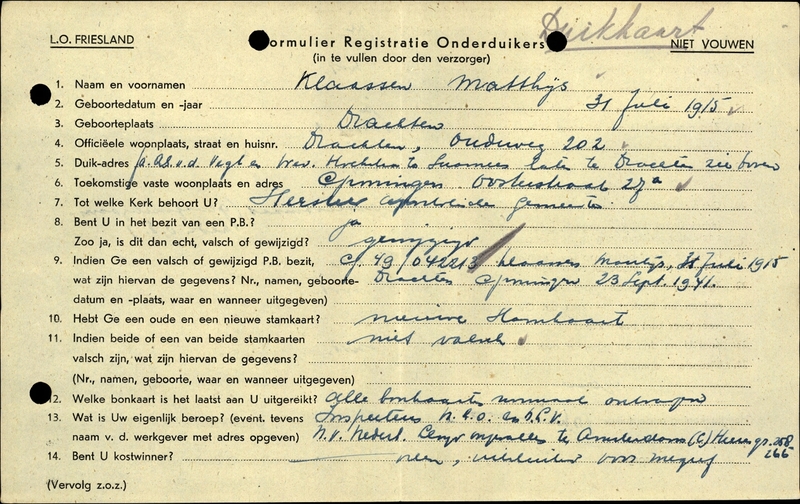 Duikkaart
L.O. FRIESLAND
Formulier Registratie Onderduikers
NIET VOUWEN
(in te vullen door den verzorger)
1. Naam en voornamen Klaassen Matthijs
2. Geboortedatum en -jaar 31 Juli 1915
3. Geboorteplaats Drachten
4. Officiëele woonplaats, straat en huisnr. Drachten, Oudeweg 202
5. Duik-adres te Suameer later te Drachten zie boven
6. Toekomstige vaste woonplaats en adres Groningen Oosterstraat 27a
7. Tot welke Kerk behoort U? Hersteld Apostolische gemeente
8. Bent U in het bezit van een P.B.? ja
Zoo ja, is dit dan echt, valsch of gewijzigd? gewijzigd
9. Indien Ge een valsch of gewijzigd P.B. bezit, G 49/042213 Klaassen 31 Juli 1915
wat zijn hiervan de gegevens? Nr., namen, geboorte- Drachten Groningen 23 Sept. 1941.
datum en -plaats, waar en wanneer uitgegeven)
10. Hebt Ge een oude en een nieuwe stamkaart? nieuwe stamkaart
11. Indien beide of een van beide stamkaarten niet valsch
valsch zijn, wat zijn hiervan de gegevens?
(Nr., namen, geboorte, waar en wanneer uitgegeven)
12. Welke bonkaart is het laatst aan U uitgereikt? alle bonkaarten normaal ontvangen
13. Wat is Uw eigenlijk beroep? (event. tevens Inspecteur
naam v. d. werkgever met adres opgeven) N.V. Nederl. te Amsterdam (C) Heerengr. 258
266
14. Bent U kostwinner? neen, voor mezelf
(Vervolg z.o.z.)